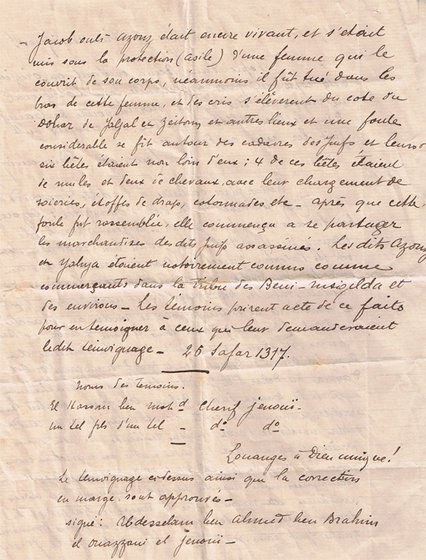 - Jacob ould Azouz était encore vivant, et s'était
mis sous la protection (asile) d'une femme qui le
couvrit de son corps, néanmoins il fût tué dans les
bras de cette femme, et des cris s'élevèrent du coté du
Dohar de Jaljal et Zeitoun et autres lieux et une foule
considerable se fit autour des cadavres des Juifs et leurs
six bêtes étaient non loin d'eux; 4 de ces bêtes étaient
de mules et deux de chevaux, avec leur chargement de
soieries, étoffes de draps, cotonnades etc - après que cette
foule fut rassemblée, elle commença a se partager
les marchandises des dits juifs assassinés. Les dits Azouz
et Yahya étaient notoirement connus comme
commerçants dans la tribu des Beni-Msigelda et
des environs - Les temoins prirent acte de ce faits
pour en temoigner a ceux qui leur demanderaient
ledit temoignage - 26 Safar 1317.
Noms des temoins.
El Hassan ben Moh^d Cherif jenouï -
un tel fils d'un tel - d° d°
Louanges à Dieu unique!
Le temoignage ci-dessus ainsi que la correction
en marge sont approuvés -
signé: Abdesselam ben Ahmed ben Brahim
el ouazzani el jenouï -